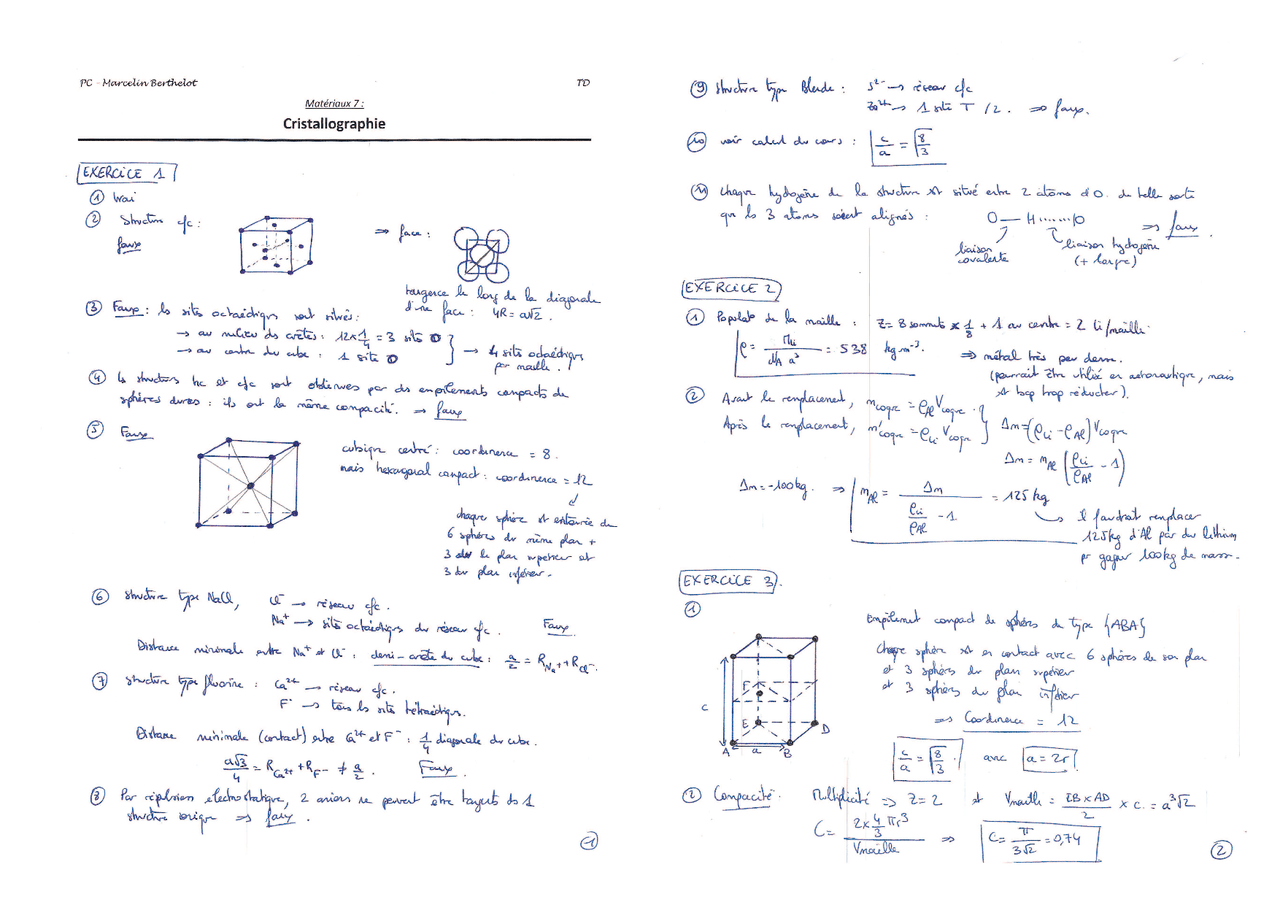 PC - Marcelin Berthelot TD
Matériaux 7 :
Cristallographie
EXERCICE 1
① Vrai
② Structure cfc :
faux
⇒ face :
tangence le long de la diagonale
d'une face : 4R = a√2.
③ Faux : les sites octaédriques sont situés :
→ au milieu des arêtes : 12 x 1/4 = 3 sites O
→ au centre du cube : 1 site O
→ 4 sites octaédriques
par maille.
④ Les structures hc et cfc sont obtenues par des empilements compacts de
sphères dures : ils ont la même compacité. ⇒ faux
⑤ Faux
cubique centré : coordinence = 8.
mais hexagonal compact : coordinence = 12
chaque sphère est entourée de
6 sphères du même plan +
3 du plan supérieur et
3 du plan inférieur.
⑥ Structure type NaCl, Cl⁻ → réseau cfc.
Na⁺ → sites octaédriques du réseau cfc. Faux.
Distance minimale entre Na⁺ et Cl⁻ : demi-arête du cube : a/2 = R_Na⁺ + R_Cl⁻.
⑦ Structure type fluorine : Ca²⁺ → réseau cfc.
F⁻ → tous les sites tétraédriques.
Distance minimale (contact) entre Ca²⁺ et F⁻ : 1/4 diagonale du cube.
a√3/4 = R_Ca²⁺ + R_F⁻ ≠ a/2. Faux.
⑧ Par répulsion électrostatique, 2 anions ne peuvent être tangents ds 1
structure ionique ⇒ faux.
①
⑨ Structure type Blende : S²⁻ → réseau cfc
Zn²⁺ → 1 site T / 2. ⇒ faux.
⑩ voir calcul du cours : c/a = √(8/3)
⑪ Chaque hydrogène de la structure est situé entre 2 atomes d'O de telle sorte
que les 3 atomes soient alignés : O — H ....... O ⇒ faux.
liaison
covalente
liaison hydrogène
(+ large)
EXERCICE 2
① Populat° de la maille : Z = 8 sommets x 1/8 + 1 au centre = 2 Li/maille.
ρ = M_Li / (N_A a³) = 538 kg.m⁻³.
⇒ métal très peu dense.
(pourrait être utilisé en aéronautique, mais
est bcp trop réducteur).
② Avant le remplacement, m_coque = ρ_Al V_coque.
Après le remplacement, m'_coque = ρ_Li V_coque
Δm = (ρ_Li - ρ_Al) V_coque
Δm = m_Al (ρ_Li/ρ_Al - 1)
Δm = -100 kg. ⇒ m_Al = Δm / (ρ_Li/ρ_Al - 1) = 125 kg
Il faudrait remplacer
125 kg d'Al par du lithium
pr gagner 100 kg de masse.
EXERCICE 3.
①
c
F
E
D
A
a
B
Empilement compact de sphères du type {ABA}
Chaque sphère est en contact avec 6 sphères de son plan
et 3 sphères du plan supérieur
et 3 sphères du plan inférieur
⇒ Coordinence = 12
c/a = √(8/3). avec a = 2r
② Compacité. Multiplicité ⇒ Z = 2 et Vmaille = EB x AD / 2 x c. = a³√2
C = 2 x 4/3 πr³ / Vmaille ⇒ C = π / 3√2 = 0,74
②